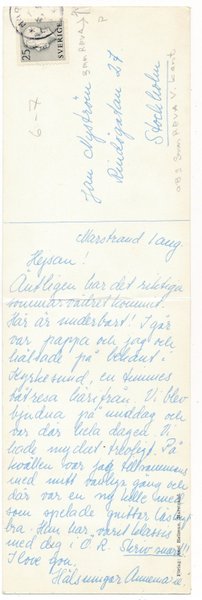 25
SVERIGE
6-7
Jan Nyström
Lindögatan 27
Stockholm
OBS 3mm REVA V. kant
3mm REVA
Marstrand 1 aug
Hejsan!
Äntligen har det riktiga
sommarvädret kommit.
Här är underbart! I går
var pappa och jag och
hälsade på bekant i
Kyrkesund, en timmes
båtresa härifrån. Vi blev
bjudna på middag och
var där hela dagen. Vi
hade mycket trevligt. På
kvällen var jag tillsammans
med mitt vanliga gäng och
där var en ny kille med
som spelade guitarr
bra. Han har varit klasskis
med dig i Ö. R. Skriv snart!!
I love you.
Hälsningar Annemarie.